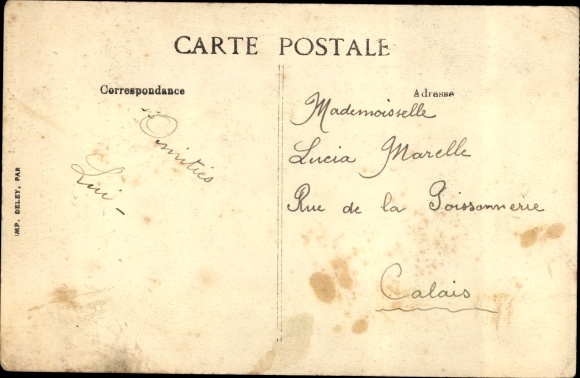 CARTE POSTALE
Correspondance
Amitiés
Adresse
Mademoisselle
Lucia Marelle
Rue de la Poissonnerie
Calais
IMP. DELEY, PAR